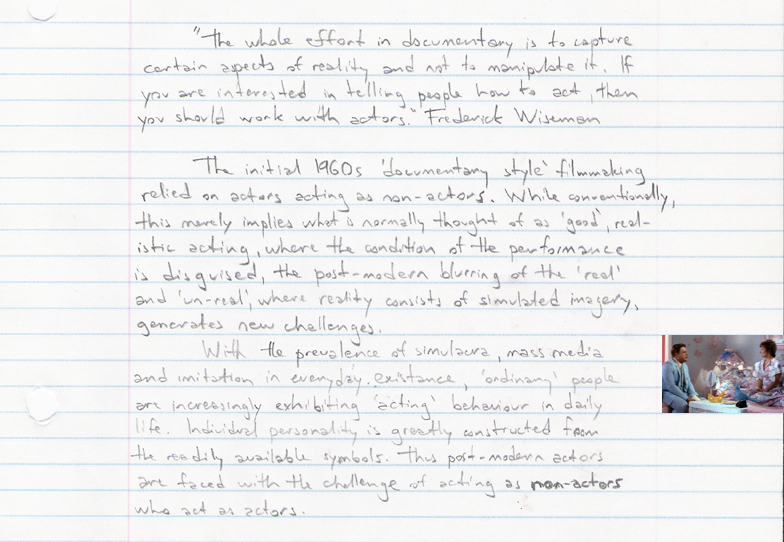 "The whole effort in documentary is to capture
certain aspects of reality and not to manipulate it. If
you are interested in telling people how to act, then
you should work with actors." Frederick Wiseman
The initial 1960s 'documentary style' filmmaking
relied on actors acting as non-actors. While conventionally,
this merely implies what is normally thought of as 'good', real-
istic acting, where the condition of the performance
is disguised, the post-modern blurring of the 'real'
and 'un-real', where reality consists of simulated imagery,
generates new challenges.
With the prevalence of simulacra, mass media
and imitation in everyday existance, 'ordinary' people
are increasingly exhibiting 'acting' behaviour in daily
life. Individual personality is greatly constructed from
the readily available symbols. Thus post-modern actors
are faced with the challenge of acting as non-actors
who act as actors.